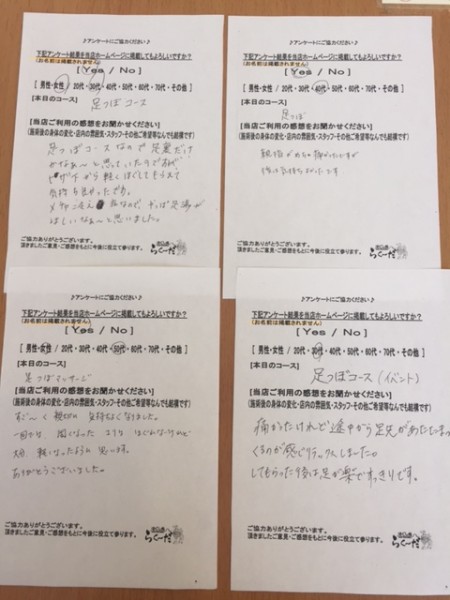 ♪アンケートにご協力ください♪
下記アンケート結果を当店ホームページに掲載してもよろしいですか?
(お名前は掲載されません)
[ Yes / No ]
[ 男性・女性 / 20代・30代・40代・50代・60代・70代・その他 ]
[本日のコース]
足つぼコース
[当店ご利用の感想をお聞かせください]
(施術後の身体の変化・店内の雰囲気・スタッフ・その他ご希望等なんでも結構です)
足つぼコースなので足裏だけ
かなぁ〜と思っていたのですが、
ヒザ下から軽くほぐしてもらえて
気持ち良かったです。
ほしいなぁ〜と思いました。
ご協力ありがとうございます。
頂きましたご意見・ご感想をもとに今後に役立て参ります。
らく〜だ
♪アンケートにご協力ください♪
下記アンケート結果を当店ホームページに掲載してもよろしいですか?
(お名前は掲載されません)
[ Yes / No ]
[ 男性・女性 / 20代・30代・40代・50代・60代・70代・その他 ]
[本日のコース]
足つぼ
[当店ご利用の感想をお聞かせください]
(施術後の身体の変化・店内の雰囲気・スタッフ・その他ご希望等なんでも結構です)
親指がめちゃ痛かったですが
後は気持ちよかったです
ご協力ありがとうございます。
頂きましたご意見・ご感想をもとに今後に役立て参ります。
らく〜だ
♪アンケートにご協力ください♪
下記アンケート結果を当店ホームページに掲載してもよろしいですか?
(お名前は掲載されません)
[ Yes / No ]
[ 男性・女性 / 20代・30代・40代・50代・60代・70代・その他 ]
[本日のコース]
足つぼマッサージ
[当店ご利用の感想をお聞かせください]
(施術後の身体の変化・店内の雰囲気・スタッフ・その他ご希望等なんでも結構です)
すご〜く 気持ちよくなりました。
一回では、
軽くなったように思います。
ありがとうございました。
ご協力ありがとうございます。
頂きましたご意見・ご感想をもとに今後に役立て参ります。
らく〜だ
♪アンケートにご協力ください♪
下記アンケート結果を当店ホームページに掲載してもよろしいですか?
(お名前は掲載されません)
[ Yes / No ]
[ 男性・女性 / 20代・30代・40代・50代・60代・70代・その他 ]
[本日のコース]
足つぼコース(イベント)
[当店ご利用の感想をお聞かせください]
(施術後の身体の変化・店内の雰囲気・スタッフ・その他ご希望等なんでも結構です)
痛かったけれど途中から足先があたたまって
くるのが感じリラックスしました。
してもらった後は足が楽ですっきりです。
ご協力ありがとうございます。
頂きましたご意見・ご感想をもとに今後に役立て参ります。
らく〜だ